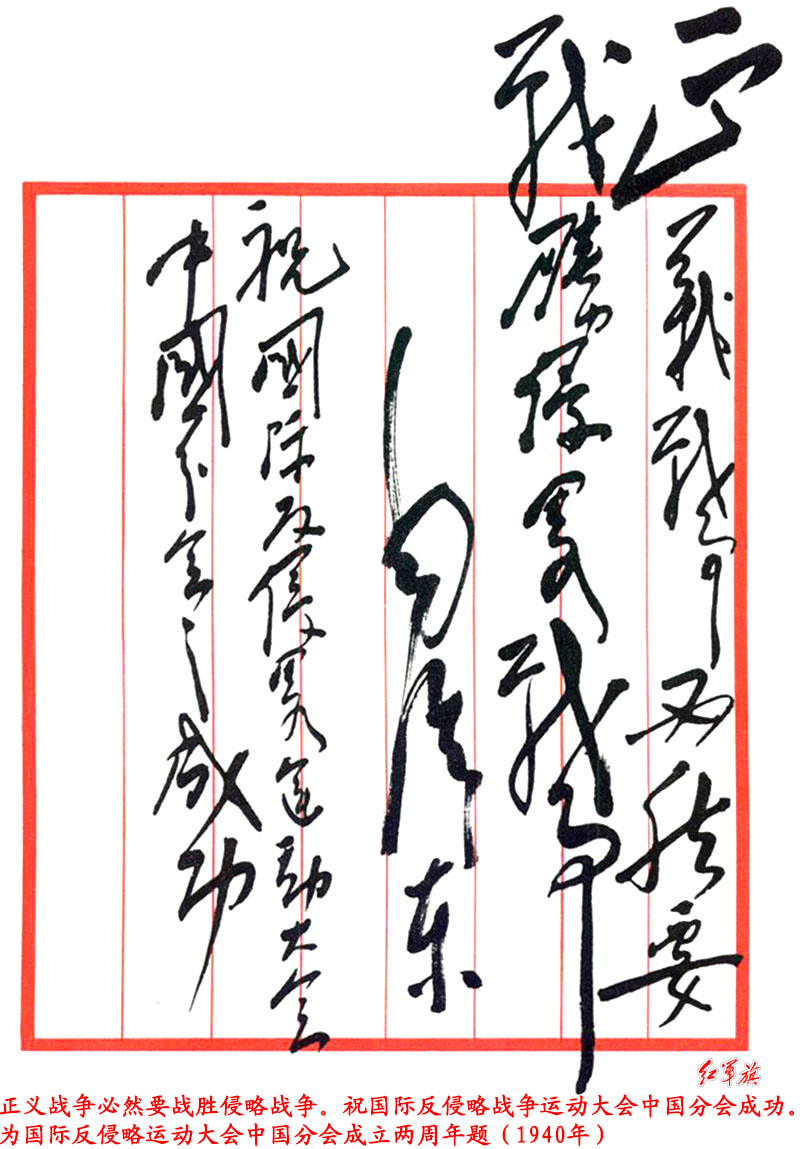 正義戰爭必然要
戰勝侵畧戰爭
毛澤东
祝國际反侵畧運動大会
中國分会之成功
红军旗
正义战争必然要战胜侵略战争。祝国际反侵略战争运动大会中国分会成功。
为国际反侵略运动大会中国分会成立两周年题（1940年）